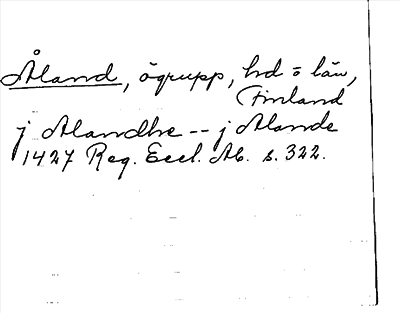 Åland, ögrupp, hd o län,
Finland
j Alandhe -- j Alande
1427 Reg. Eccl. Ab. s. 322.